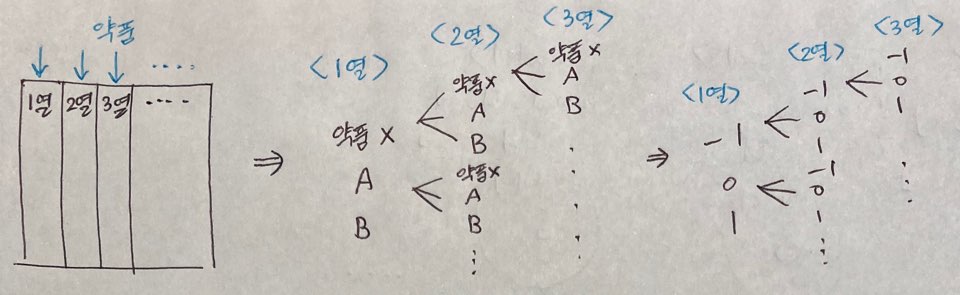 약품
....
1열 2열 3열 ....
⇒
<1열>
약품 X
A
B
<2열>
약품 X
A
B
약품 X
A
B
⋮
<3열>
약품 X
A
B
.
.
.
.
.
⇒
<1열>
-1
0
1
<2열>
-1
0
1
-1
0
1
⋮
<3열>
-1
0
1
⋮